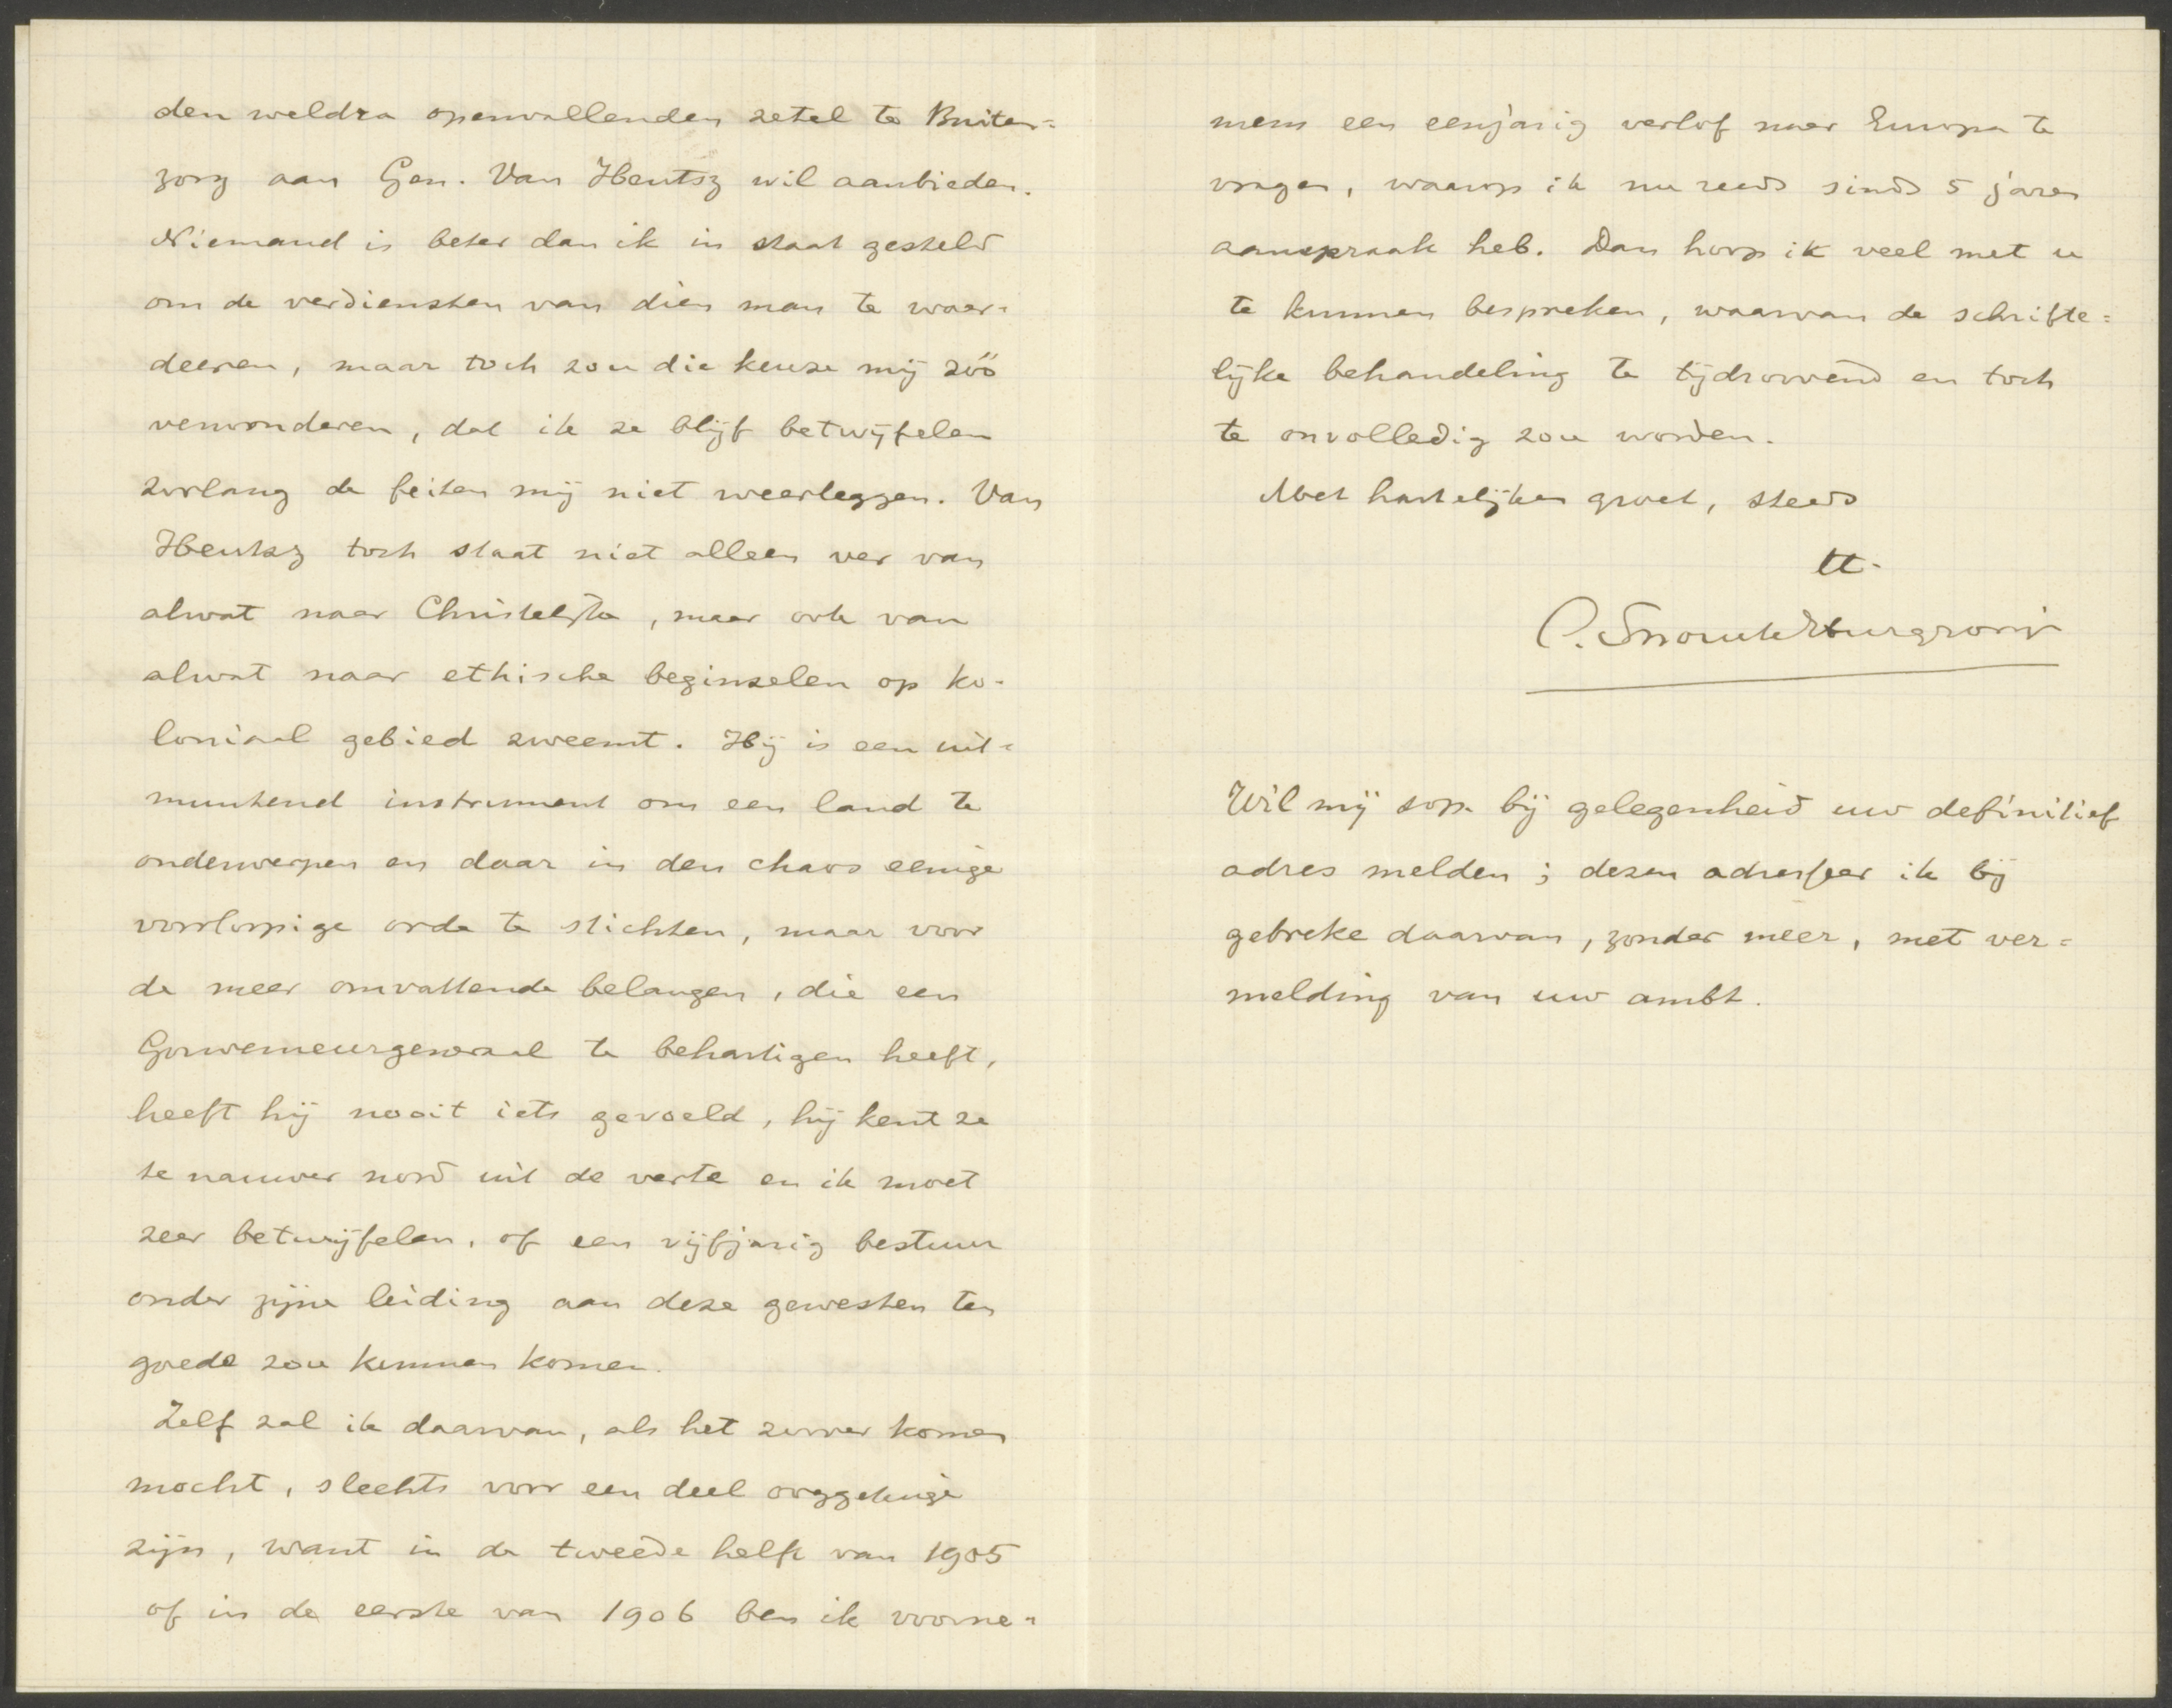 den weldra openvallenden zetel te Buiten=
zorg aan Gen. Van Heutsz wil aanbieden.
Niemand is beter dan ik in staat gesteld
om de verdiensten van dien man te waar-
deeren, maar toch zou die keuze mij zóó
verwonderen, dat ik ze blijf betwijfelen
zoolang de feiten mij niet weerleggen. Van
Heutsz toch staat niet alleen ver van
alwat naar Christelijke, maar ook van
alwat naar ethische beginselen op ko-
loniaal gebied zweemt. Hij is een uit-
muntend instrument om een land te
onderwerpen en daar in den chaos eenige
voorloopige orde te stichten, maar voor
de meer omvattende belangen, die een
Gouverneurgeneraal te behartigen heeft,
heeft hij nooit iets gevoeld, hij kent ze
te nauwer nood uit de verte en ik moet
zeer betwijfelen, of een vijfjarig bestuur
onder zijne leiding aan deze gewesten ten
goede zou kunnen komen.
Zelf zal ik daarvan, als het zoover komen
mocht, slechts voor een deel ooggetuige
zijn, want in de tweede helft van 1905
of in de eerste van 1906 ben ik voorne-
mens een eenjarig verlof naar Europa te
vragen, waarop ik nu reeds sinds 5 jaren
aanspraak heb. Dan hoop ik veel met u
te kunnen bespreken, waarvan de schrifte=
lijke behandeling te tijdroovend en toch
te onvolledig zou worden.
Met hartelijken groet, steeds
tt.
C. Snouck Hurgronje
Wil mij sop. bij gelegenheid uw definitief
adres melden; dezen adresseer ik bij
gebreke daarvan, zonder meer, met ver=
melding van uw ambt.